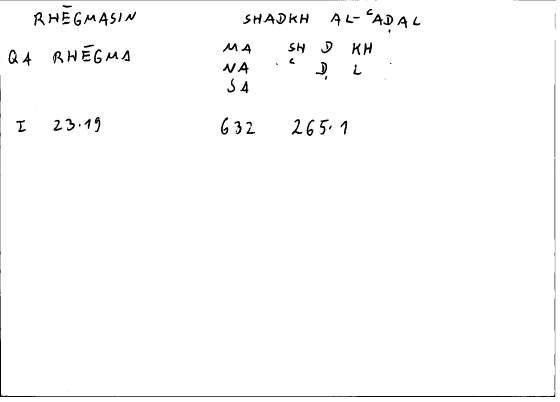 RHĒGMASIN SHADKH AL-ʿAḌAL
Q4 RHĒGMA MA SH D KH
NA . ʿ Ḍ L
SA
I 23.19 632 265.1